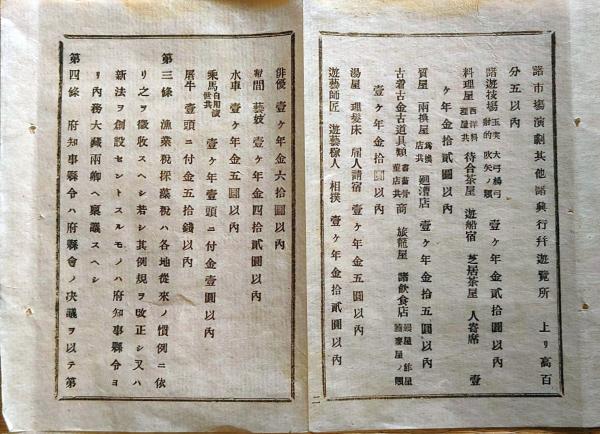 諸市塲演劇其他諸興行幷遊覽所 上リ高百
分五以內
諸遊技塲 玉突 大弓楊弓 射的 吹矢ノ類 壹ヶ年金貳拾圓以內
料理屋 西洋料理屋共 待合茶屋 遊船宿 芝居茶屋 人寄席 壹
ヶ年金拾貳圓以內
質屋 兩換屋 爲換店共 廻漕店 壹ヶ年金拾五圓以內
古着古金古道具類 書畵骨董店共 商 旅籠屋 諸飮食店 鰻屋 鮓屋 蕎麥屋ノ類
壹ヶ年金拾圓以內
湯屋 理髮床 雇人請宿 壹ヶ年金五圓以內
遊藝師匠 遊藝稼人 相撲 壹ヶ年金拾貳圓以內
俳優 壹ヶ年金六拾圓以內
幇間 藝妓 壹ヶ年金四拾貳圓以內
水車 壹ヶ年金五圓以內
乘馬 自用渡世共 壹ヶ年壹頭ニ付金壹圓以內
屠牛 壹頭ニ付金五拾錢以內
第三條 漁業稅採藻稅ハ各地從來ノ慣例ニ依
リ之ヲ徵收スヘシ若シ其例規ヲ改正シ又ハ
新法ヲ創設セントスルモノハ府知事縣令ヨ
リ內務大藏兩卿ヘ稟議スヘシ
第四條 府知事縣令ハ府縣會ノ决議ヲ以テ第